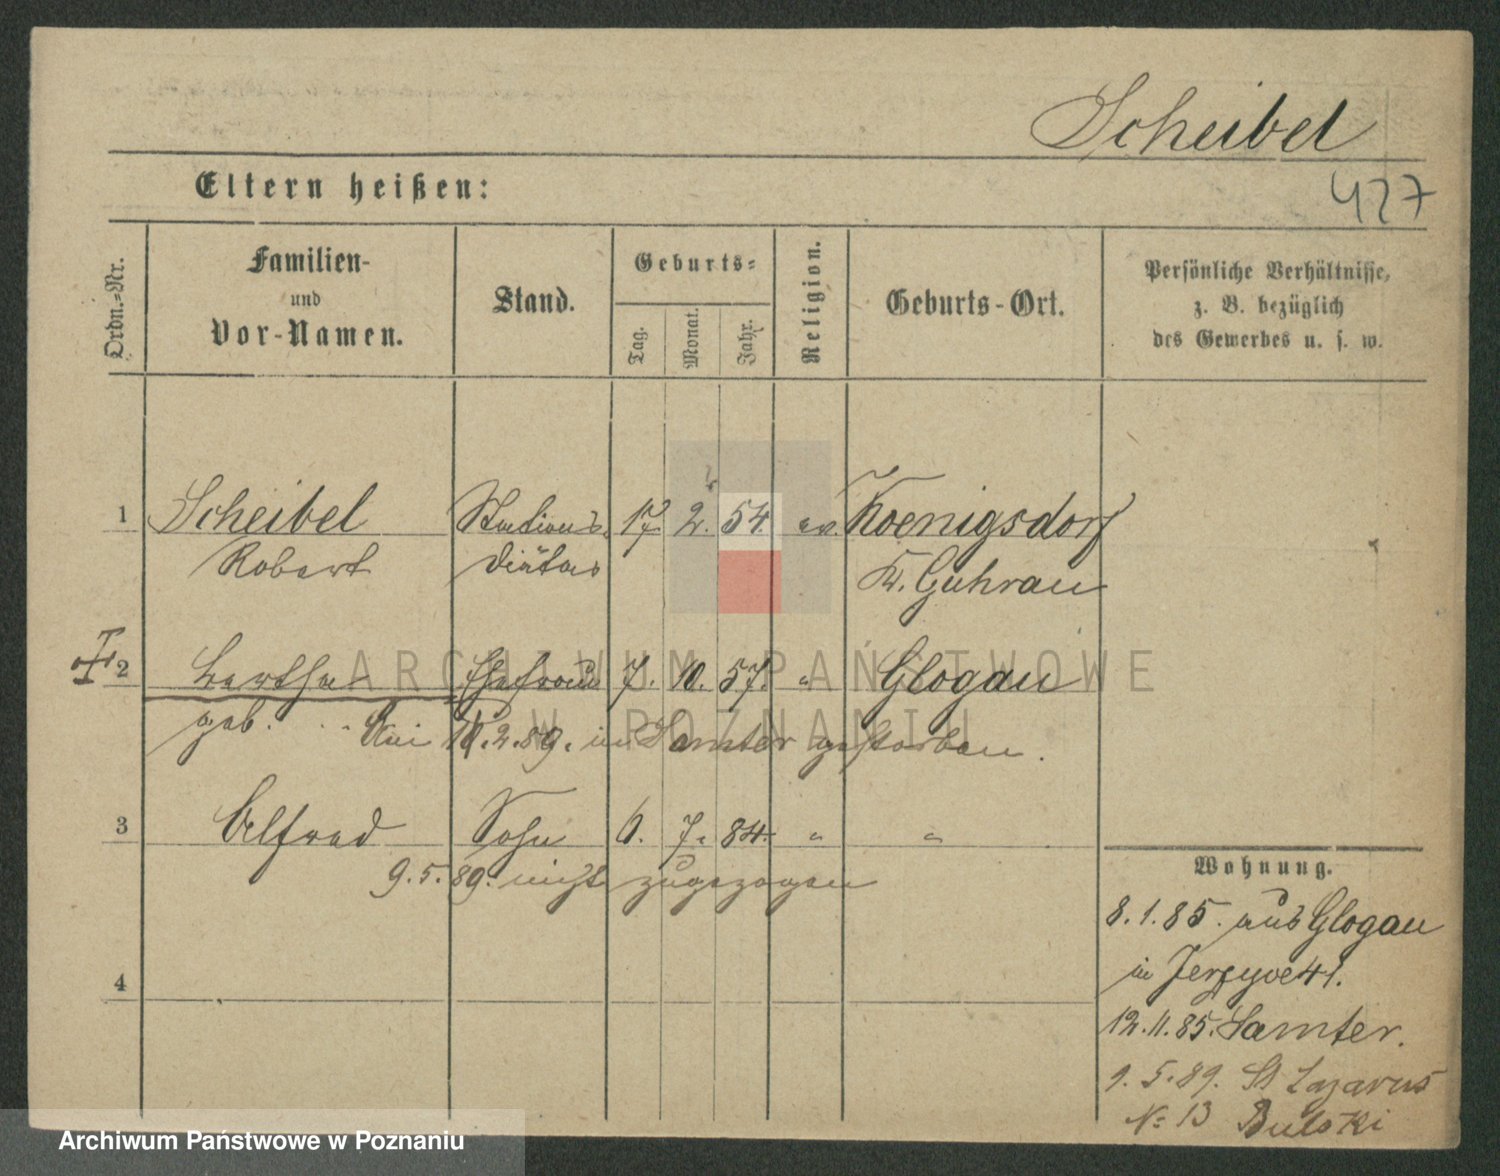 Scheibel
427
Eltern heißen:
Ordn.-Nr.
Familien-
und
Vor-Namen.
Stand.
Geburts-
Tag.
Monat.
Jahr.
Religion.
Geburts-Ort.
Persönliche Verhältnisse,
z. B. bezüglich
des Gewerbes u. s. w.
1 Scheibel Stations- 17. 2. 54. ev. Koenigsdorf
Robert Diätar Kr. Guhrau
2 Bertha Ehefrau 7. 10. 57. " Glogau
geb. .2.89. in Samter gestorben.
3 Alfred Sohn 6. 7. 84. " "
9.5.89. nicht zugezogen
4
Wohnung.
8.1.85. aus Glogau
in 41.
12.11.85. Samter.
9.5.89. St Lazarus
No 13
ARCHIWUM PAŃSTWOWE
W POZNANIU
Archiwum Państwowe w Poznaniu